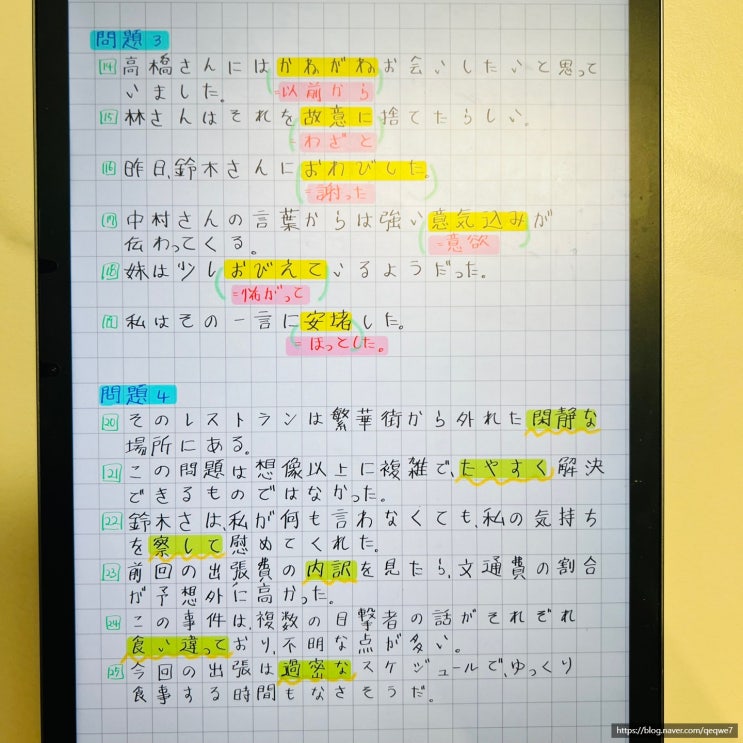 問題3
14 高橋さんにはかねがねお会いしたいと思って
いました。
=以前から
15 林さんはそれを故意に捨てたらしい。
=わざと
16 昨日、鈴木さんにおわびした。
=謝った
17 中村さんの言葉からは強い意気込みが
伝わってくる。
=意欲
18 妹は少しおびえているようだった。
=怖がって
19 私はその一言に安堵した。
=ほっとした。
問題4
20 そのレストランは繁華街から外れた閑静な
場所にある。
21 この問題は想像以上に複雑で、たやすく解決
できるものではなかった。
22 鈴木さは、私が何も言わなくても、私の気持ち
を察して慰めてくれた。
23 前回の出張費の内訳を見たら、交通費の割合
が予想外に高かった。
24 この事件は、複数の目撃者の話がそれぞれ
食い違っており、不明な点が多い。
25 今回の出張は過密なスケジュールで、ゆっくり
食事する時間もなさそうだ。
https://blog.naver.com/qeqwe7